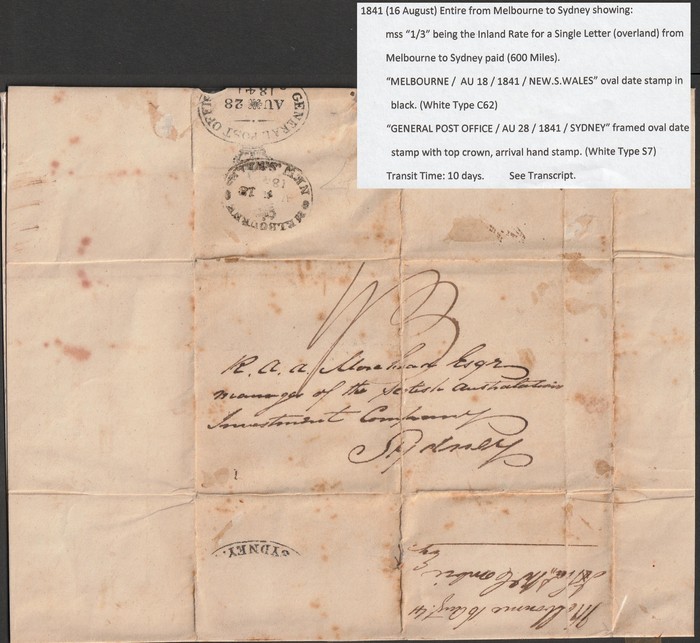 1841 (16 August) Entire from Melbourne to Sydney showing:
mss “1/3” being the Inland Rate for a Single Letter (overland) from
Melbourne to Sydney paid (600 Miles).
“MELBOURNE / AU 18 / 1841 / NEW.S.WALES” oval date stamp in
black. (White Type C62)
“GENERAL POST OFFICE / AU 28 / 1841 / SYDNEY” framed oval date
stamp with top crown, arrival hand stamp. (White Type S7)
Transit Time: 10 days. See Transcript.
GENERAL POST OFFICE
AU 28
1841
NEW.S.WALES
18
MELBOURNE
1/3
R. A. A. Morehead Esqr
manager of the Scotish Australasian
Investment Company
Sydney
SYDNEY.
Melbourne 16 Augt 41